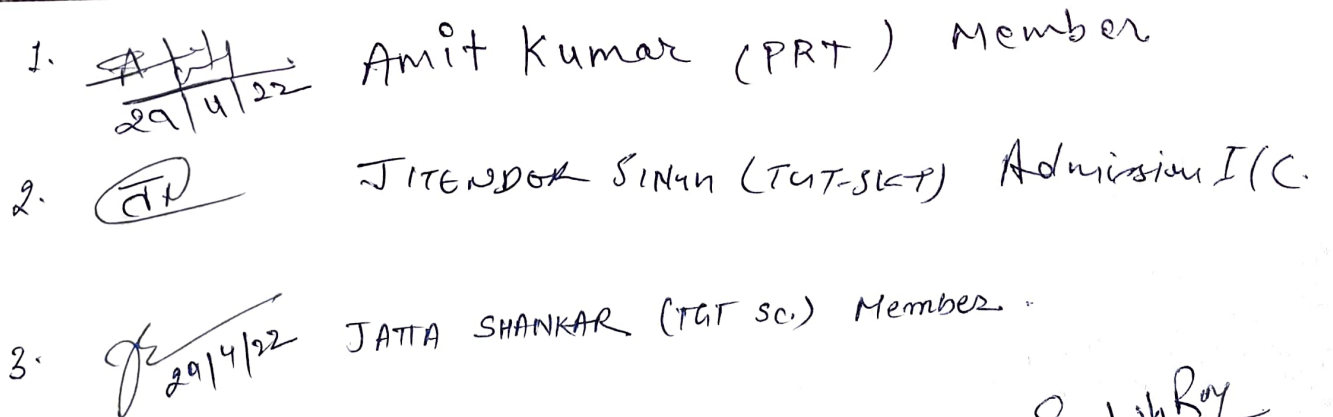 1. 29/4/22 Amit Kumar (PRT) Member
2. JITENDER SINGH (TGT-SKT) Admission I/C.
3. 29/4/22 JATTA SHANKAR (TGT SC.) Member.
Roy